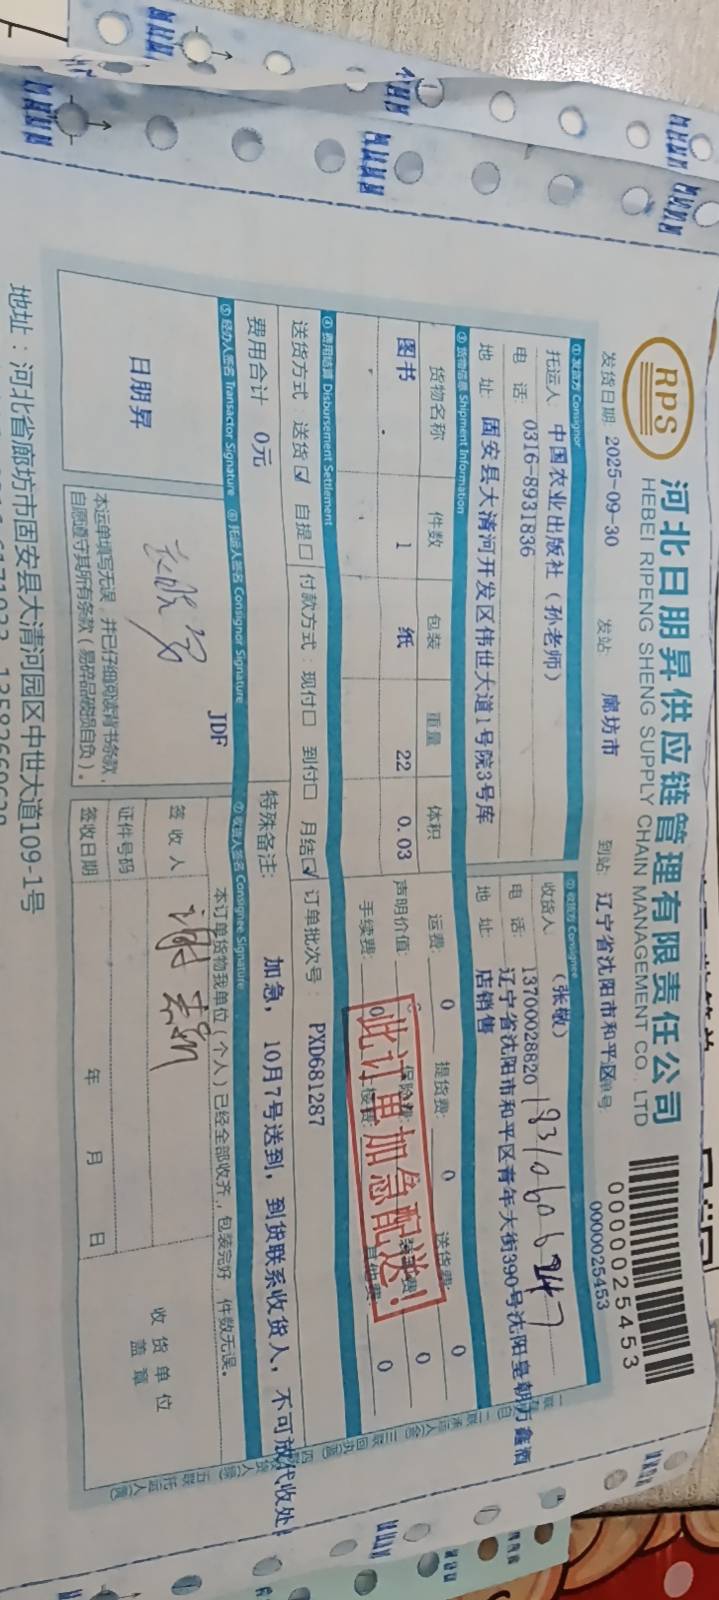 RPS
河北日朋昇供应链管理有限责任公司
HEBEI RIPENG SHENG SUPPLY CHAIN MANAGEMENT CO., LTD
0000025453
0000025453
发货日期: 2025-09-30 发站: 廊坊市 到站: 辽宁省沈阳市和平区
①发货方 Consignor
托运人: 中国农业出版社（孙老师）
电 话: 0316-8931836
地 址: 固安县大清河开发区伟世大道1号院3号库
②收货方 Consignee
收货人: （张敬）
电 话: 13700028820
地 址: 辽宁省沈阳市和平区青年大街390号沈阳皇朝万鑫酒
店销售
③货物信息 Shipment Information
货物名称 件数 包装 重量 体积
图书 1 纸 22 0.03
运费: 0 提货费: 0 送货费: 0
声明价值: 保险费: 0
手续费: 0 0
此订单加急配送!
④费用结算 Disbursement Settlement
送货方式: 送货☑ 自提□ 付款方式: 现付□ 到付□ 月结☑ 订单批次号: PXD681287
费用合计 0元
特殊备注: 加急，10月7号送到，到货联系收货人，不可放代收处!
⑤经办人签名 Transactor Signature ⑥托运人签名 Consignor Signature ⑦收货人签名 Consignee Signature
日朋昇
JDF
本运单填写无误，并已仔细阅读背书条款，
自愿遵守其所有条款（易碎品破损自负）。
本订单货物我单位（个人）已经全部收齐，包装完好，件数无误。
签 收 人
证件号码
签收日期 年 月 日
收货单位
盖章
地址：河北省廊坊市固安县大清河园区中世大道109-1号